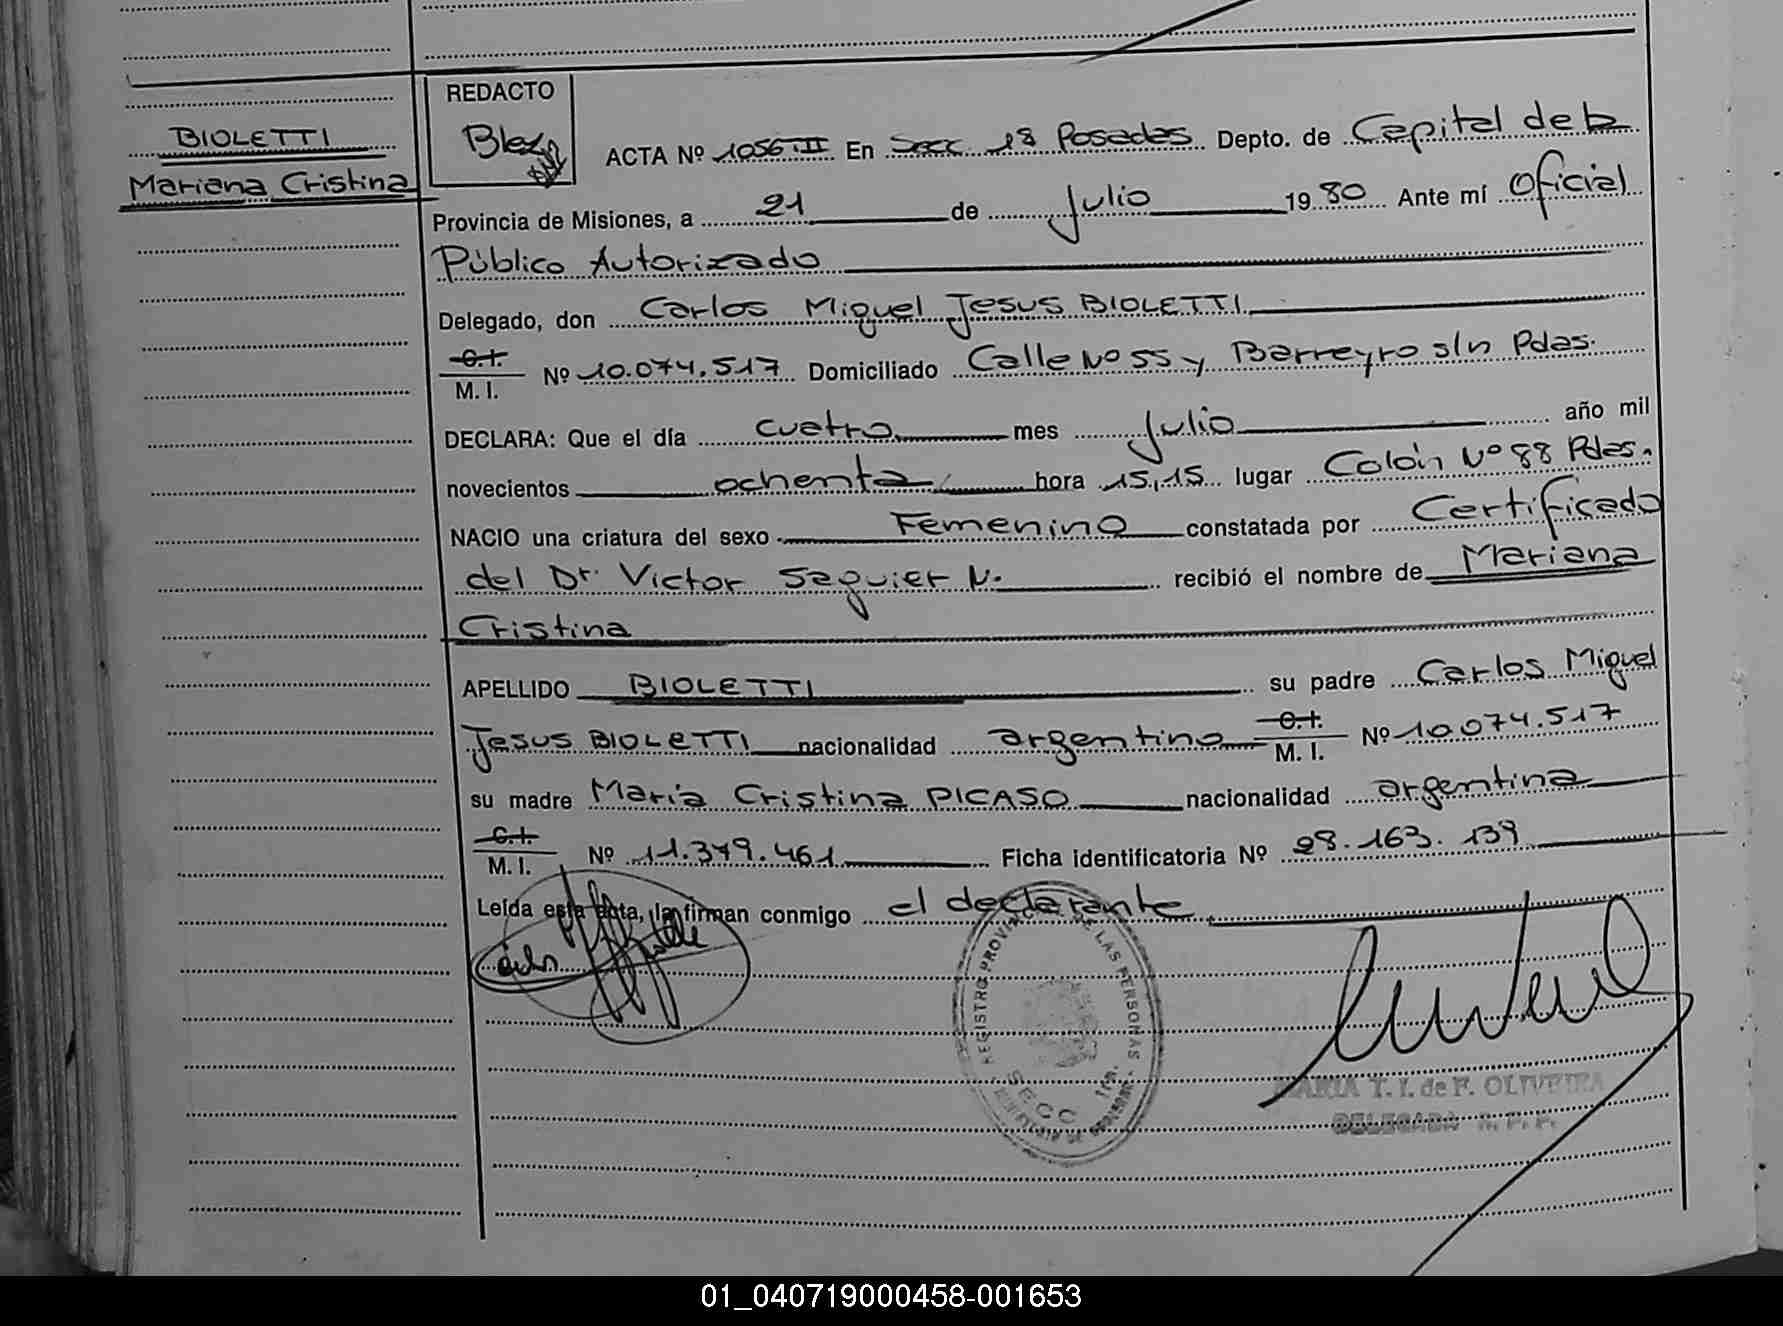 BIOLETTI
Mariana Cristina
REDACTO
ACTA Nº 1056 II En Secc. 1ª Posadas Depto. de Capital de la
Provincia de Misiones, a 21 de Julio 1980 Ante mí Oficial
Público Autorizado
Delegado, don Carlos Miguel Jesus BIOLETTI
C.I.
M. I. Nº 10.074.517 Domiciliado Calle Nº 55 y Barreyro s/n Pdas.
DECLARA: Que el día cuatro mes Julio año mil
novecientos ochenta hora 15,15 lugar Colón Nº 88 Pdas.
NACIO una criatura del sexo Femenino constatada por Certificado
del Dr. Victor Saguier N. recibió el nombre de Mariana
Cristina
APELLIDO BIOLETTI su padre Carlos Miguel
Jesus BIOLETTI nacionalidad argentino C.I. M. I. Nº 10.074.517
su madre María Cristina PICASO nacionalidad argentina
C.I.
M. I. Nº 11.379.461 Ficha identificatoria Nº 28.163.139
Leída esta acta, la firman conmigo el declarante
REGISTRO PROVINCIAL DE LAS PERSONAS
SECC 1ra.
MARIA T. I. de F. OLIVEIRA
DELEGADA R. P. P.
01_040719000458-001653